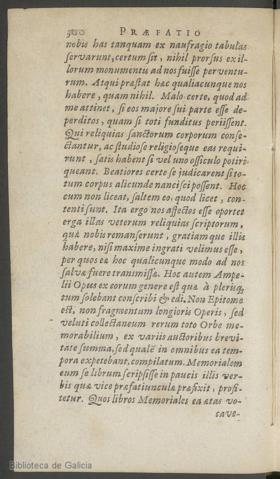 300 PRÆFATIO
nobis has tanquam ex naufragio tabulas
servarunt, certum sit, nihil prorsus ex il-
lorum monumentu ad nos fuisse perventu-
rum. Atqui præstat hæc qualiacunque nos
habere, quam nihil. Malo certe, quod ad
me attinet, si eos majore sui parte esse de-
perditos, quam si toti funditus periissent.
Qui reliquias sanctorum corporum conse-
ctantur, ac studiose religioseque eas requi-
runt, satis habent si vel uno ossiculo potiri
queant. Beatiores certe se judicarent si to-
tum corpus alicunde nancisci possent. Hoc
cum non liceat, saltem eo, quod licet, con-
tenti sunt. Ita ergo nos affectos esse oportet
erga illas veterum reliquias scriptorum,
quæ nobis remanserunt, gratiamque illis
habere, nisi maxime ingrati velimus esse,
per quos ea hoc qualicunque modo ad nos
salva fuere transmissa. Hoc autem Ampe-
lii Opus ex eorum genere est quæ à plerisq;
tum solebant conscribi & edi. Non Epitome
est, non fragmentum longioris Operis, sed
veluti collectaneum rerum toto Orbe me-
morabilium, ex variis auctoribus brevi-
tate summa, sed quale in omnibus ea tem-
pora expetebant, compilatum. Memorialem
eum se librum scripsisse in paucis illis ver-
bis quæ vice præfatiunculæ præfixit, profi-
tetur. Quos libros Memoriales ea ætas vo-
cave-
Biblioteca de Galicia